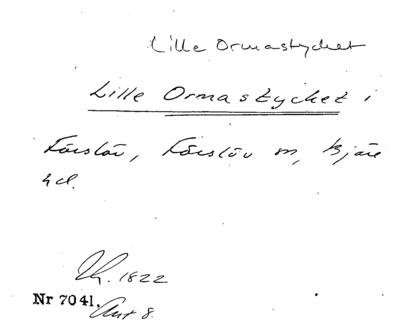 Lille Ormastycket
Lille Ormastycket i
Förslöv, Förslöv sn, Bjäre
hd.
1822
Nr 7041.
Akt 8.